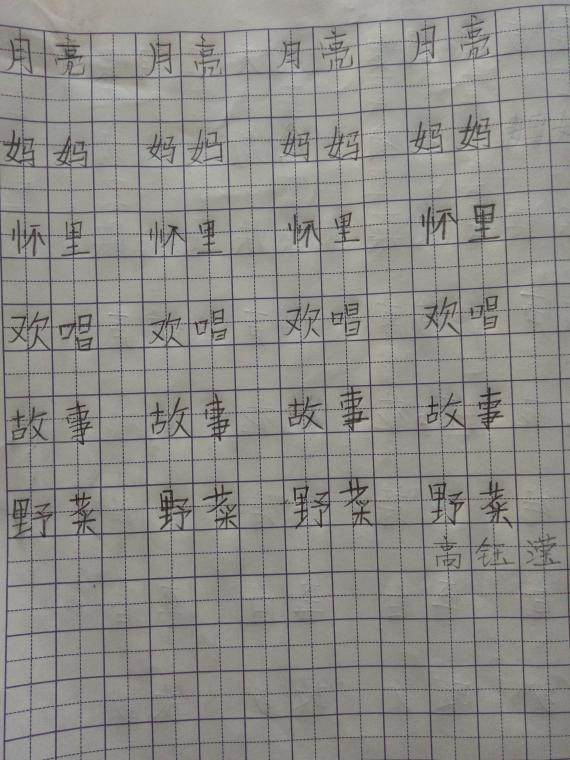 月亮 月亮 月亮 月亮
妈妈 妈妈 妈妈 妈妈
怀里 怀里 怀里 怀里
欢唱 欢唱 欢唱 欢唱
故事 故事 故事 故事
野菜 野菜 野菜 野菜
高钰滢